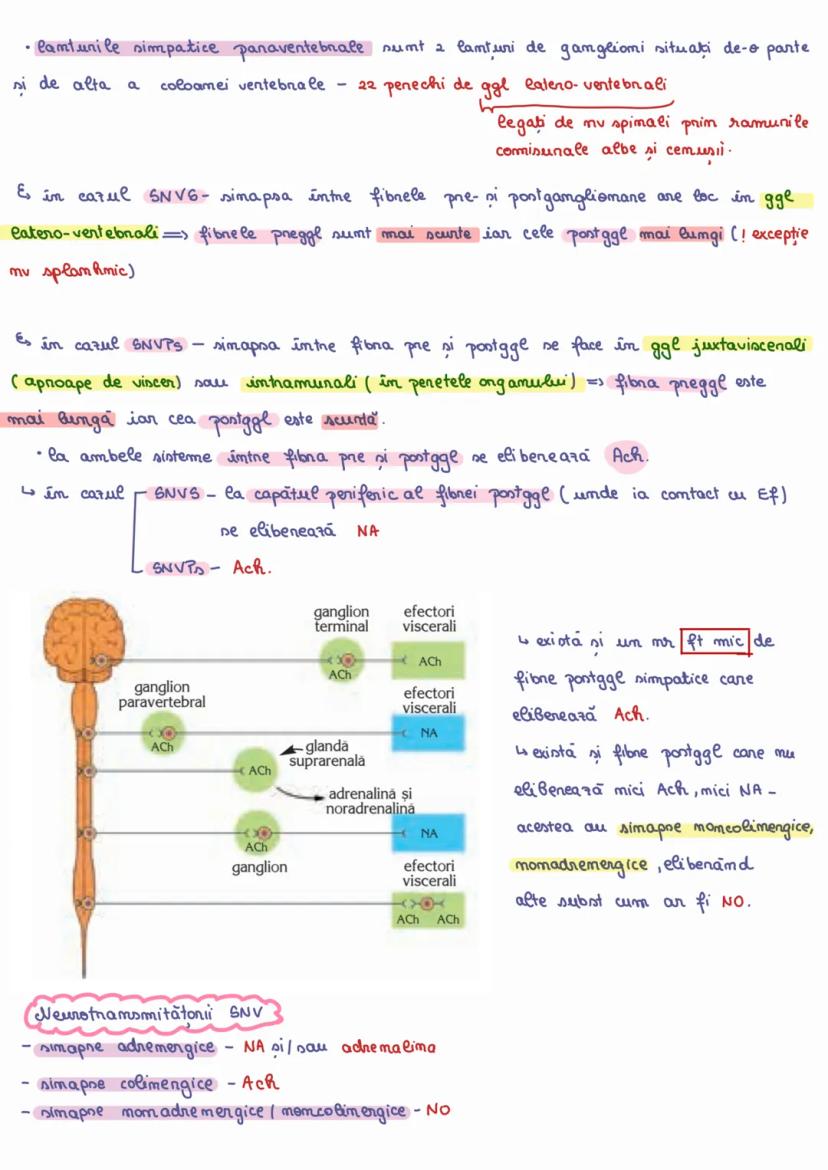 · lanțurile simpatice paravertebrale sunt 2 lanțuri de ganglioni situați de-o parte
și de alta a coloanei vertebrale – 22 perechi de ggl latero-vertebrali
legați de nv spinali prin ramurile
comisurale albe și cenușii.
↳ în cazul SNVS - sinapsa între fibrele pre- și postganglionare are loc în ggl
latero-vertebrali => fibrele preggl sunt mai scurte iar cele postggl mai lungi (! excepție
nv splanhnic)
↳ în cazul SNVPs – sinapsa între fibra pre și postggl se face în ggl juxtaviscerali
(aproape de viscer) sau intramurali (în peretele organului) => fibra preggl este
mai lungă iar cea postggl este scurtă.
· la ambele sisteme între fibra pre și postggl se eliberează Ach.
↳ în cazul SNVS – la capătul periferic al fibrei postggl (unde ia contact cu Ef)
se eliberează NA
SNVPs – Ach.
ganglion terminal
efectori viscerali
ACh
ACh
ganglion paravertebral
efectori viscerali
ACh
NA
glandă suprarenală
ACh
adrenalină și noradrenalină
ACh
NA
ganglion
efectori viscerali
ACh ACh
↳ există și un nr ft mic de
fibre postggl simpatice care
eliberează Ach.
↳ există și fibre postggl care nu
eliberează nici Ach, nici NA –
acestea au sinapse noncolinergice,
nonadrenergice, eliberând
alte subst cum ar fi NO.
Neurotransmițătorii SNV
– sinapse adrenergice – NA și/sau adrenalina
– sinapse colinergice – Ach
– sinapse nonadrenergice / noncolinergice – NO